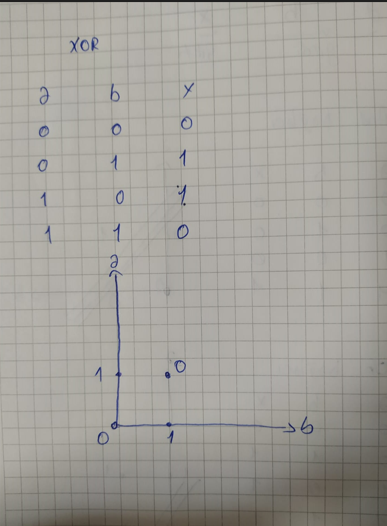 XOR
a b x
0 0 0
0 1 1
1 0 1
1 1 0
a
1 0
0 1 b